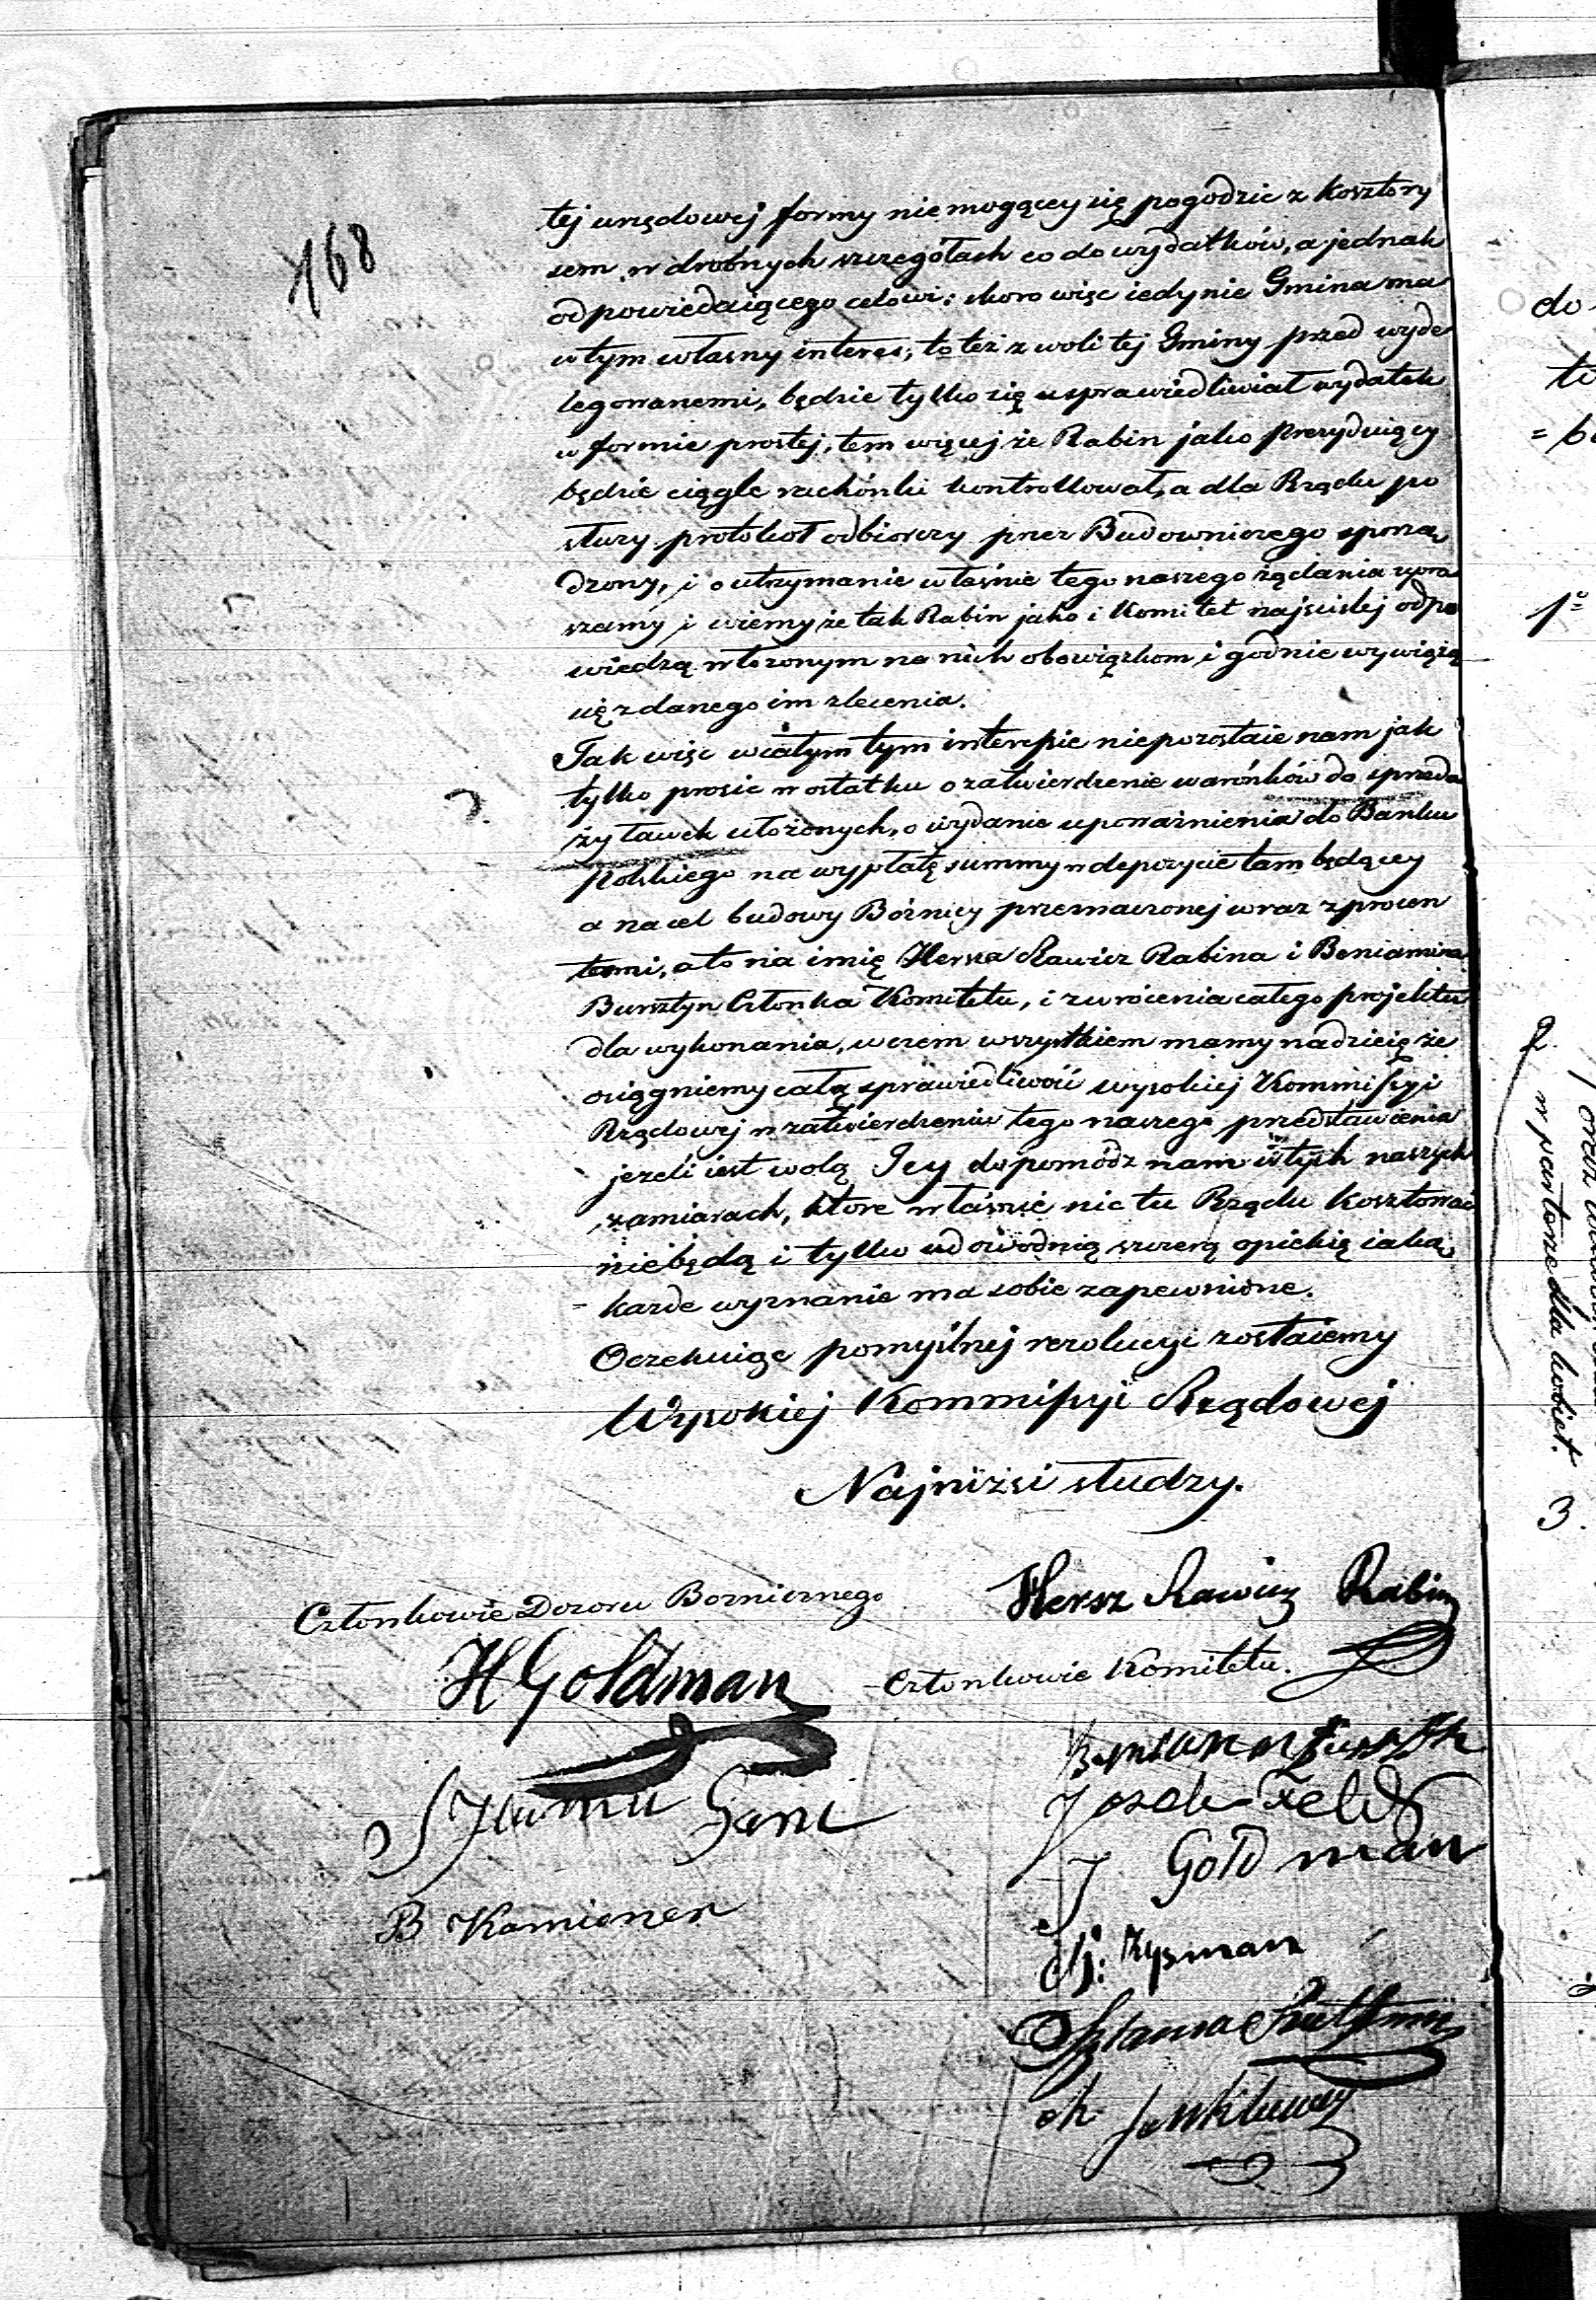 168
tej urzędowej formy niemogącey się pogodzic z kosztory
sem w drobnych szczegółach co do wydatków, a jednak
odpowiedaiącego celowi: skoro więc iedynie Gmina ma
w tym własny interes, to też z woli tej Gminy przed wyde
legowanemi, będzie tylko się usprawiedliwiał wydatek
w formie prostej, tem więcej że Rabin jako prezyduiący
będzie ciągle rachónki kontrollował, a dla Rządu po
służy protokoł odbiorczy przez Budowniczego sporzą
dzony, i o utrzymanie właśnie tego naszego żądania upra
szamy i wiemy że tak Rabin jako i Komitet najscislej odpo
wiedzą włozonym na nich obowiązkom i godnie wywiążą
się z danego im zlecenia.
Tak więc w całym tym interessie niepozostaie nam jak
tylko prosic w ostatku o zatwierdzenie warónków do sprzeda
ży ławek ułożonych, o wydanie upoważnienia do Banku
Polskiego na wypłatę summy w depozycie tam będącey
a na cel budowy Bóżnicy przeznaczonej wraz z procen
tami, a to na imię Hersza Rawicz Rabina i Beniamina
Bursztyn Członka Komitetu, i zwrócenia całego projektu
dla wykonania, w czem wszystkiem mamy nadzieię że
osiągniemy całą sprawiedliwość wysokiej Kommissyi
Rządowej w zatwierdzeniu tego naszego przedstawienia
jezeli iest wolą Jey dopomódz nam w tych naszych
zamiarach, które właśnie nic tu Rządu kosztować
niebędą i tylko udowodnią szczerą opiekię iaką
każde wyznanie ma sobie zapewnione.
Oczekuiąc pomyślnej rezolucyi zostaiemy
Wysokiej Kommissyi Rządowej
Najniżsi słudzy.
Członkowie Dozoru Boznicznego
Hersz Rawicz Rabin
H Goldman
Członkowie Komitetu.
Josek Feld
J Goldman
B Kamioner
Rysman
do
1º
w partore dla kobiet.
3.